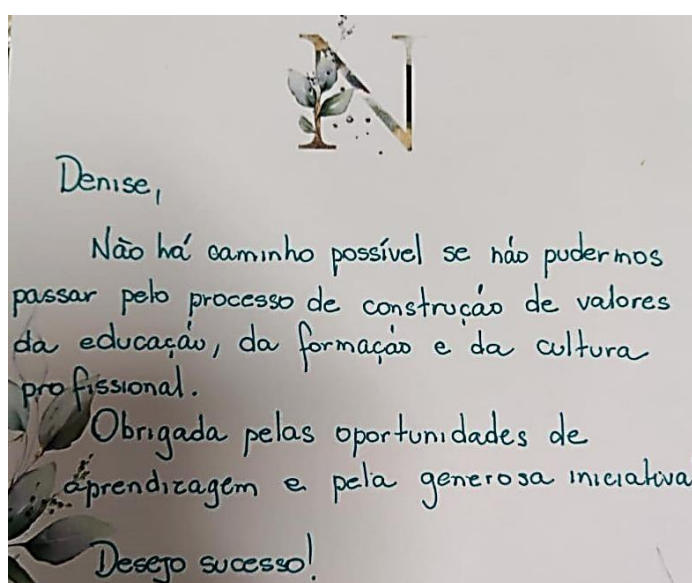 N
Denise,
Não há caminho possível se não pudermos
passar pelo processo de construção de valores
da educação, da formação e da cultura
profissional.
Obrigada pelas oportunidades de
aprendizagem e pela generosa iniciativa
Desejo sucesso!